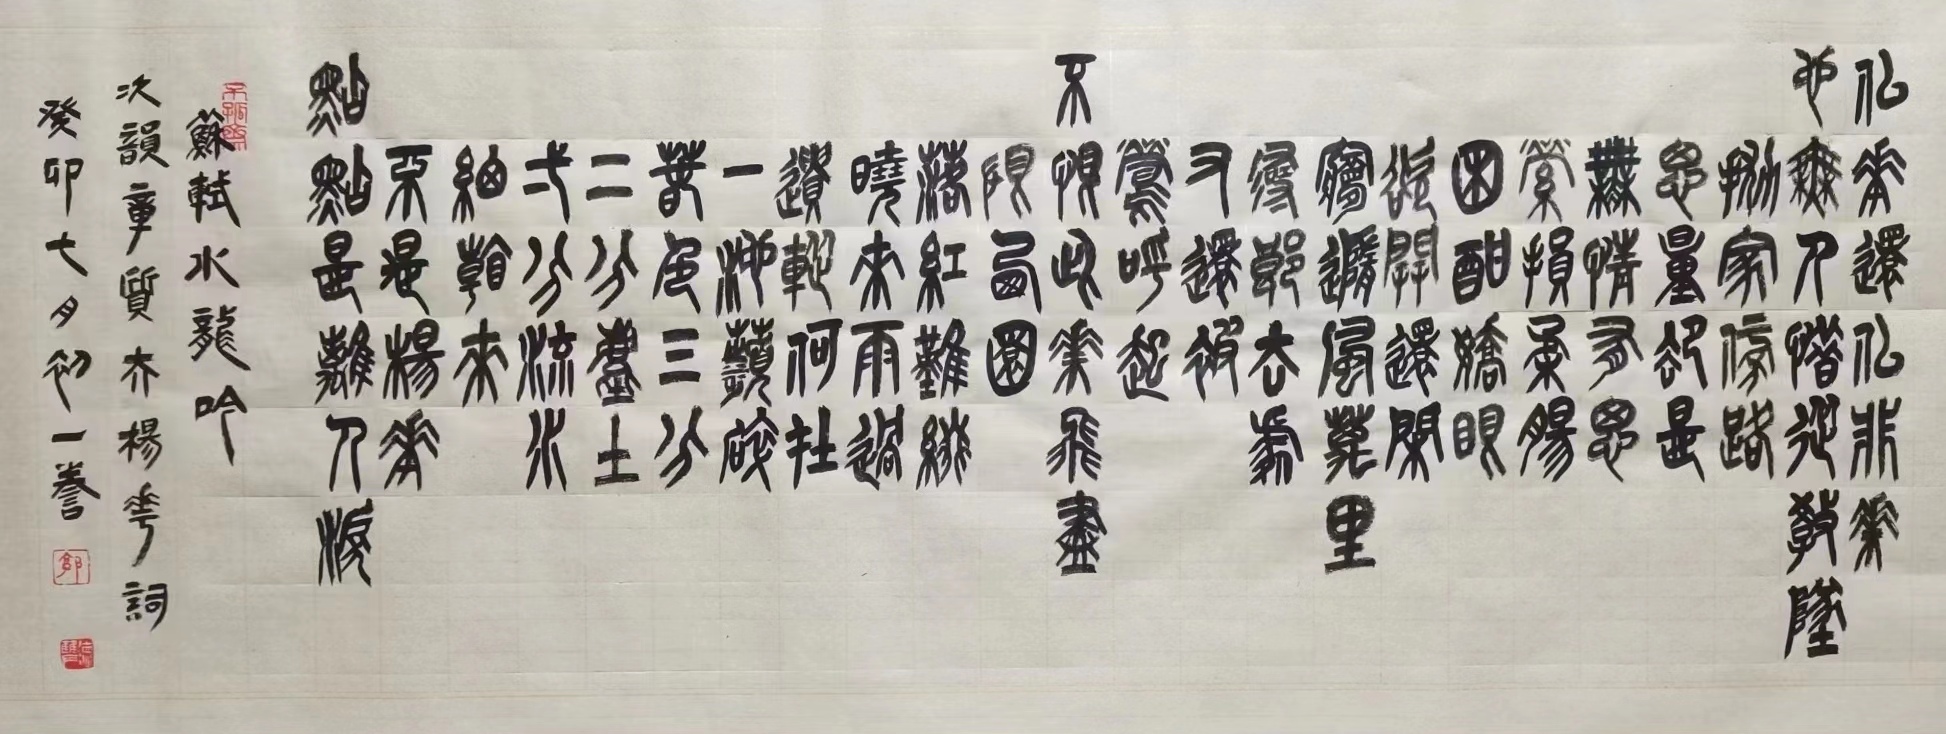 似花還似非花
也無人惜從教墜
抛家傍路
思量卻是
無情有思
縈損柔腸
困酣嬌眼
欲開還閉
夢隨風萬里
尋郎去處
又還被
鶯呼起
不恨此花飛盡
恨西園
落紅難綴
曉來雨過
遺蹤何在
一池萍碎
春色三分
二分塵土
弌分流水
細看來
不是楊花
點點是離人淚
蘇軾水龍吟
次韻章質夫楊華詞
癸卯七月初一誊
郭